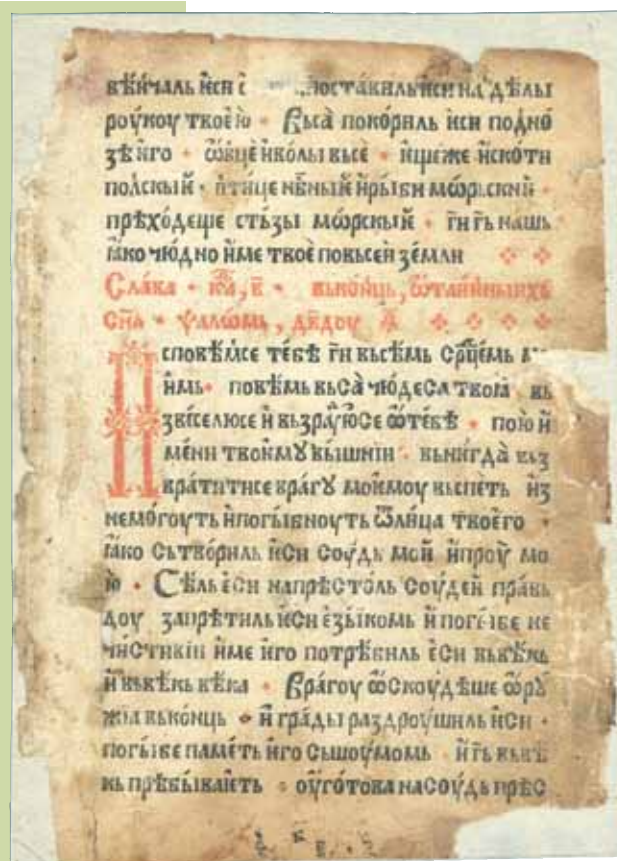 вѣнчаль ѥси поставиль ѥси на дѣлы
роукоу твоѥю • Вьса покориль ѥси подно
зѣ ѥго • ѡвце ѝволы вьсе • ѥщеже ѝскоти
полскыѥ • птице нб҃ныѥ ѝрыби мѡрьскиѥ •
прѣходеще стьзы мѡрскыѥ • гѝ гь нашь
ꙗко чюдно ѝме твоѐ повьсеѝ зѐмли
Слава • вьконць, ѡтаинныихь
сн҃а • ѱалѡмь, дв҃доу
Исповѣмсе тебѣ гѝ вьсѣмь срц҃емь
имь • повѣмь вьса чюдеса твоꙗ • вь
звеселюсе ѝ вьзраⷣуюсе ѡтебѣ • пою ѝ
мени твоѥмꙋ вышнїи • вьнѥгда вьз
вратитисе врагꙋ моѥмоу вьспеть из
немогоуть ѝпогыбноуть ѿлица твоѥго •
ꙗко сьтвориль ѥси соудь моѝ ѝпроу мо
ю • Сѣль ѐси напрѣстоль соудеѝ правь
доу запрѣтиль ѥси ѐзыкомь ѝ погыбе не
чистивїи ѝме ѥго потрѣбиль ѐси вьвѣкь
ѝ вьвѣкь вѣка • Врагоу ѡскоудѣше ѡрꙋ
жїа вьконць • ѝ грады раздроушиль ѥси •
погыбе паметь ѥго сьшоумомь • ѝ гь вьвѣ
кь прѣбываѥть • оуготова насоудь прѣс